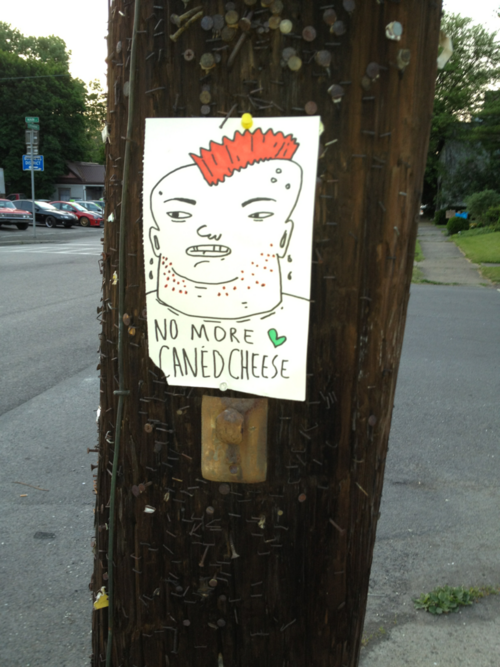 NO MORE
CANĖDCHEESE